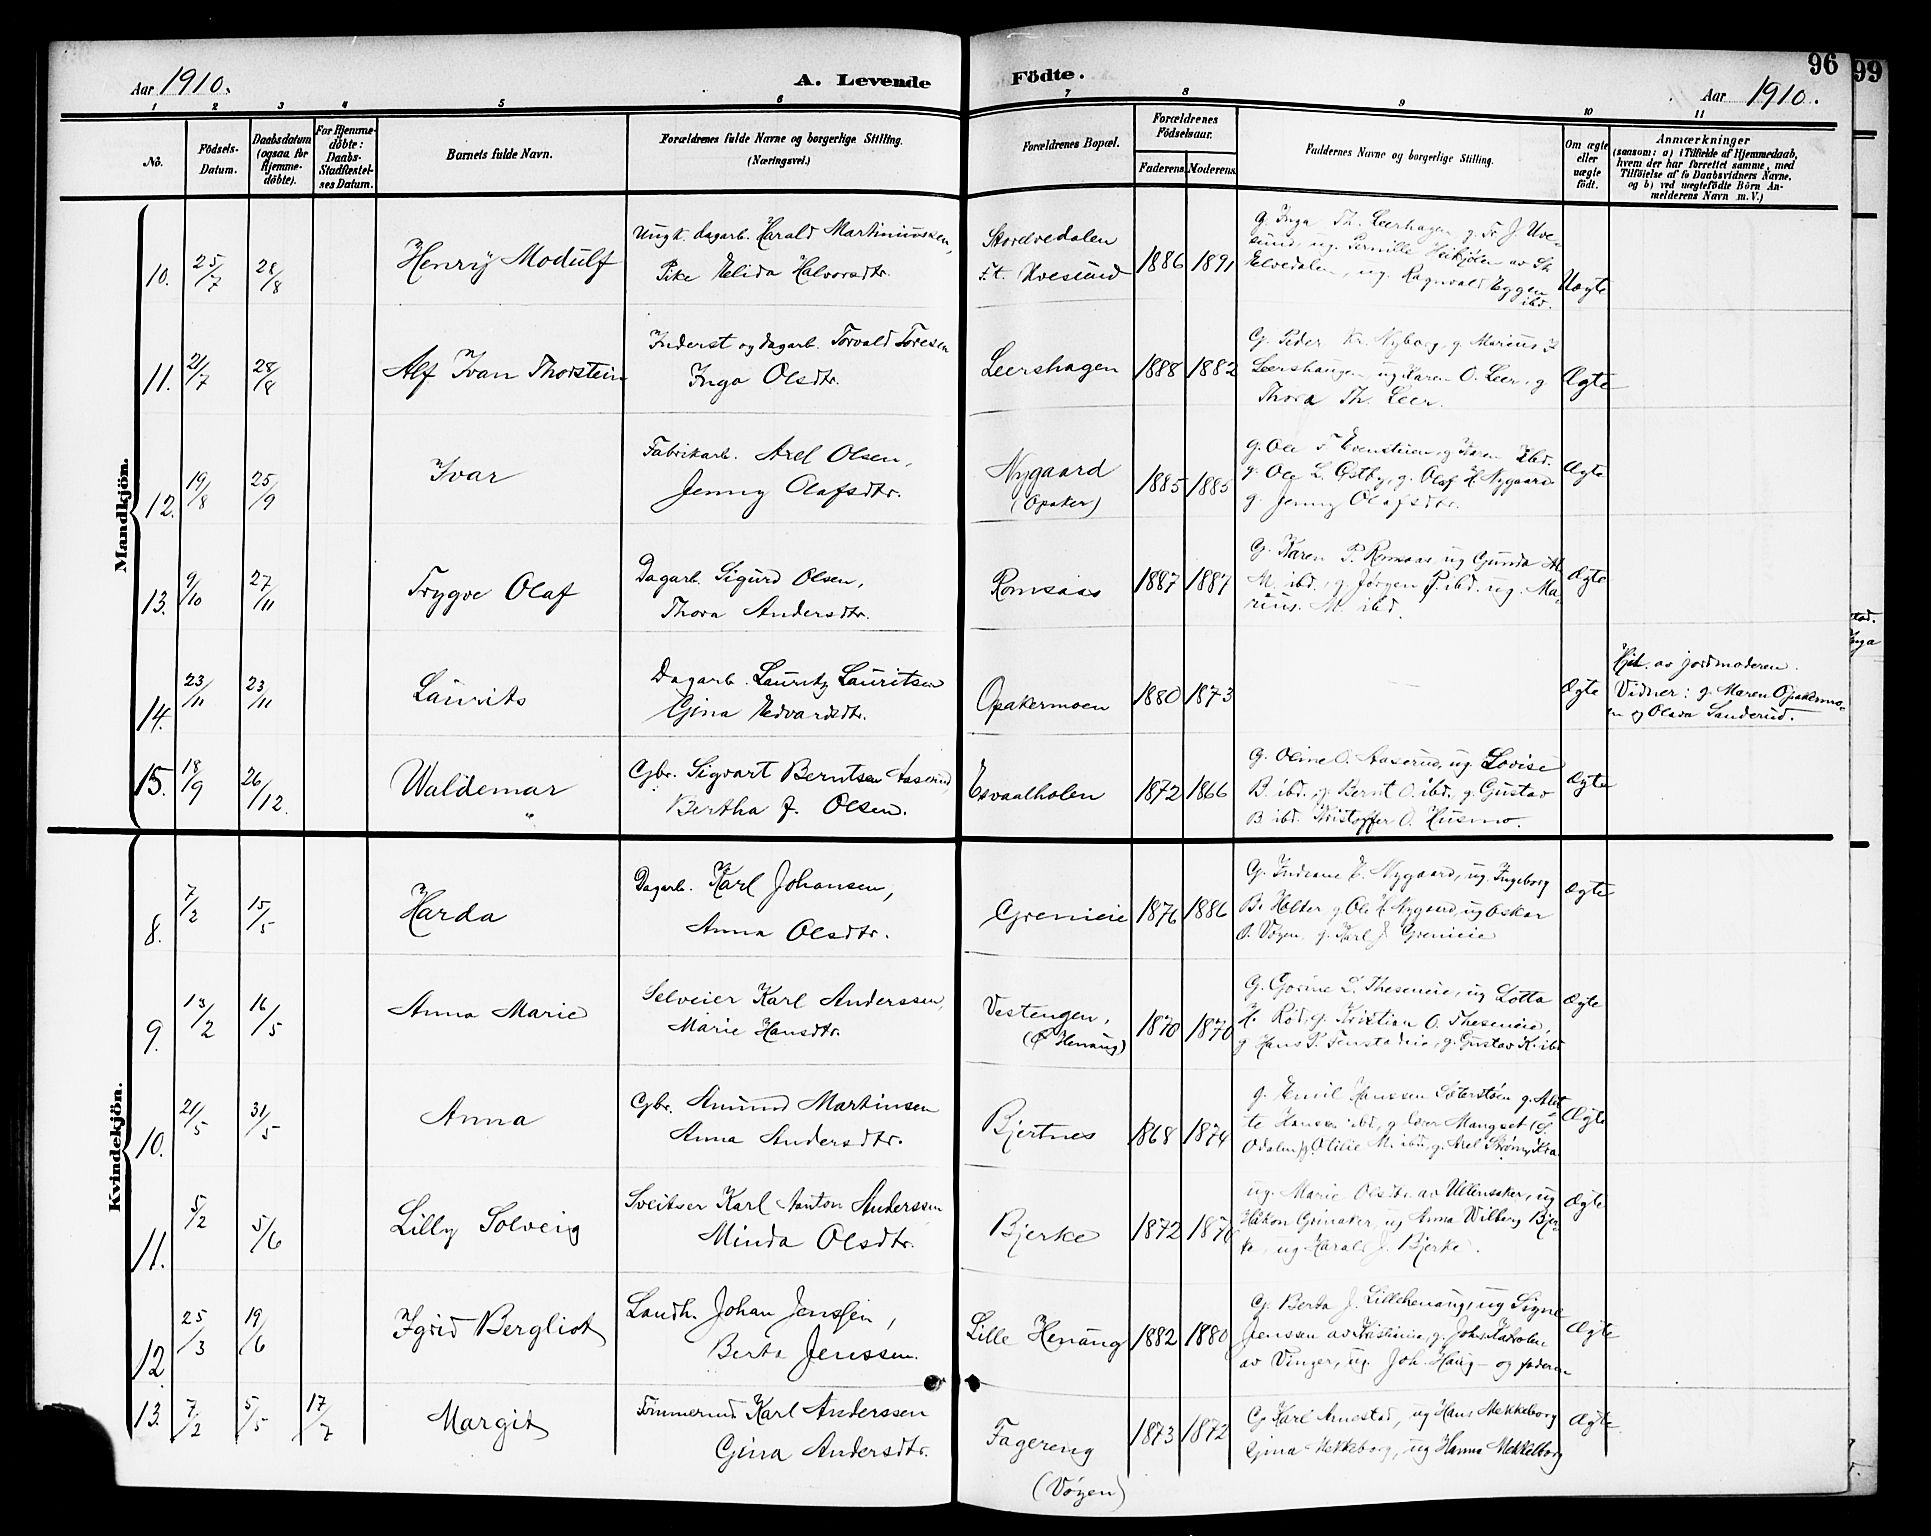 96
99
Aar 1910.
A. Levende
Födte.
Aar 1910.
1 2 3 4 5 6 7 8 9 10 11
No.
Födsels-Datum.
Daabsdatum (ogsaa for Hjemme-döbte).
For Hjemme-döbte: Daabs-Stadfæstel-ses Datum.
Barnets fulde Navn.
Forældrenes fulde Navne og borgerlige Stilling.
(Næringsvei.)
Forældrenes Bopæl.
Forældrenes Födselsaar.
Faderens. Moderens.
Faddernes Navne og borgerlige Stilling.
Om ægte eller uægte födt.
Anmærkninger
(saasom: a) i Tilfælde af Hjemmedaab,
hvem der har forrettet samme, med
Tilföielse af to Daabsvidners Navne,
og b) ved uægtefödte Börn An-
melderens Navn m. V.)
Mandkjön.
10. 25/7 28/8 Henry Modulf
Ungk. dagarb. Harald Martiniussen,
Pike Elida Halvorsdtr.
Storelvedalen
F.t. Uvesund
1886 1891
g. Inga Th. Leershagen, g. Tr. J. Uve-
sund, ug. Pernille av St.
Elvedalen, ug. Ragnvald Eggen
ibd.
Uægte
11. 21/7 28/8 Alf Ivan Thorstein
Inderst og dagarb. Torvald Toresen
Inga Olsdtr.
Leershagen
1888 1882
G. Peder Kr. Nyborg, g. Marius
Leershaugen, ug. Karen O. Leer, g.
Thora Th. Leer.
Ægte
12. 19/8 25/9 Ivar
Fabrikarb. Axel Olsen,
Jenny Olafsdtr.
Nygaard
(Opaker)
1885 1885
g. Ole T. Evenstuen, g. Karen ibd.
g. Ole L. Østby, g. Olaf H. Nygaard
g. Jenny Olafsdtr.
Ægte
13. 9/10 27/11 Trygve Olaf
Dagarb. Sigurd Olsen,
Thora Andersdtr.
Romsaas
1887 1887
G. Karen P. Romsaas ug Gunda
M. ibd., g. Jørgen P. ibd. ug. Ma-
rius. M. ibd.
Ægte
14. 23/11 23/11 Laurits
Dagarb. Lauritz Lauritsen
Gina Edvardsdtr.
Opakermoen
1880 1873
Ægte
Hjd. av jordmoderen.
Vidner: g. Maren Opakermo-
en og Olava Sanderud.
15. 18/9 26/12. Waldemar
Gbr. Sigvart Berntsen Aaserud,
Bertha f. Olsen.
Esvaalholen
1872 1866
G. Oline O. Aaserud, ug. Lovise
B. ibd., g. Bernt O. ibd., g. Gustav
B. ibd. Kristoffer O. Husmo.
Ægte
Kvindekjön.
8. 7/2 15/5 Harda
Dagarb. Karl Johansen,
Anna Olsdtr.
Greneie
1876 1886
G. Indiane H. Nygaard, ug. Ingeborg
B. Holter, g. Ole H. Nygaard, ug Oskar
O. Vøyen, g. Karl J. Greneie
Ægte
9. 13/2 16/5 Anna Marie
Selveier Karl Anderssen,
Marie Hansdtr.
Vestengen,
Henaug)
1870 1870
G. Gorine L. Theseneie, ug Lotta
H. Rød, g. Kristian O. Theseneie,
g Hans P. Tenstadeie, g. Gustav K. ibd
Ægte
10. 21/5 31/5 Anna
Gbr. Amund Martinsen
Anna Andersdtr.
Bjertnes
1868 1874
g. Emil Hanssen Sæterstøen g.
Hanssen ibd, g. Iver Mangset (S.
Odalen) g. Otilie M. ibd, g. Axel Strøm, Kra.
Ægte
11. 5/2 5/6 Lilly Solveig
Sveitser Karl Anton Anderssen
Minda Olsdtr.
Bjerke
1872 1876
ug. Marie Olsdtr. av Ullensaker, ug
Håkon Grinaker, ug Anna Wilberg Bjer-
ke, ug Harald J. Bjerke.
Ægte
12 25/3 19/6 Igrid Bergliot
Landh. Johan Jenssen,
Berta Jenssen.
Lille Henaug
1882 1880
G. Berta J. Lillehenaug, ug Signe
Jenssen av Kristiania, g. Johs.
av Vinger, ug. Joh. Haug - og faderen
Ægte
13. 7/2 5/5 17/7 Margit
Tømmermd. Karl Anderssen
Gina Andersdtr.
Fagereng
(Vøyen)
1873 1872
G. Karl Arnestad, ug Hans Mekkeborg
Gina Mekkeborg, ug Hanna Mekkelborg
Ægte